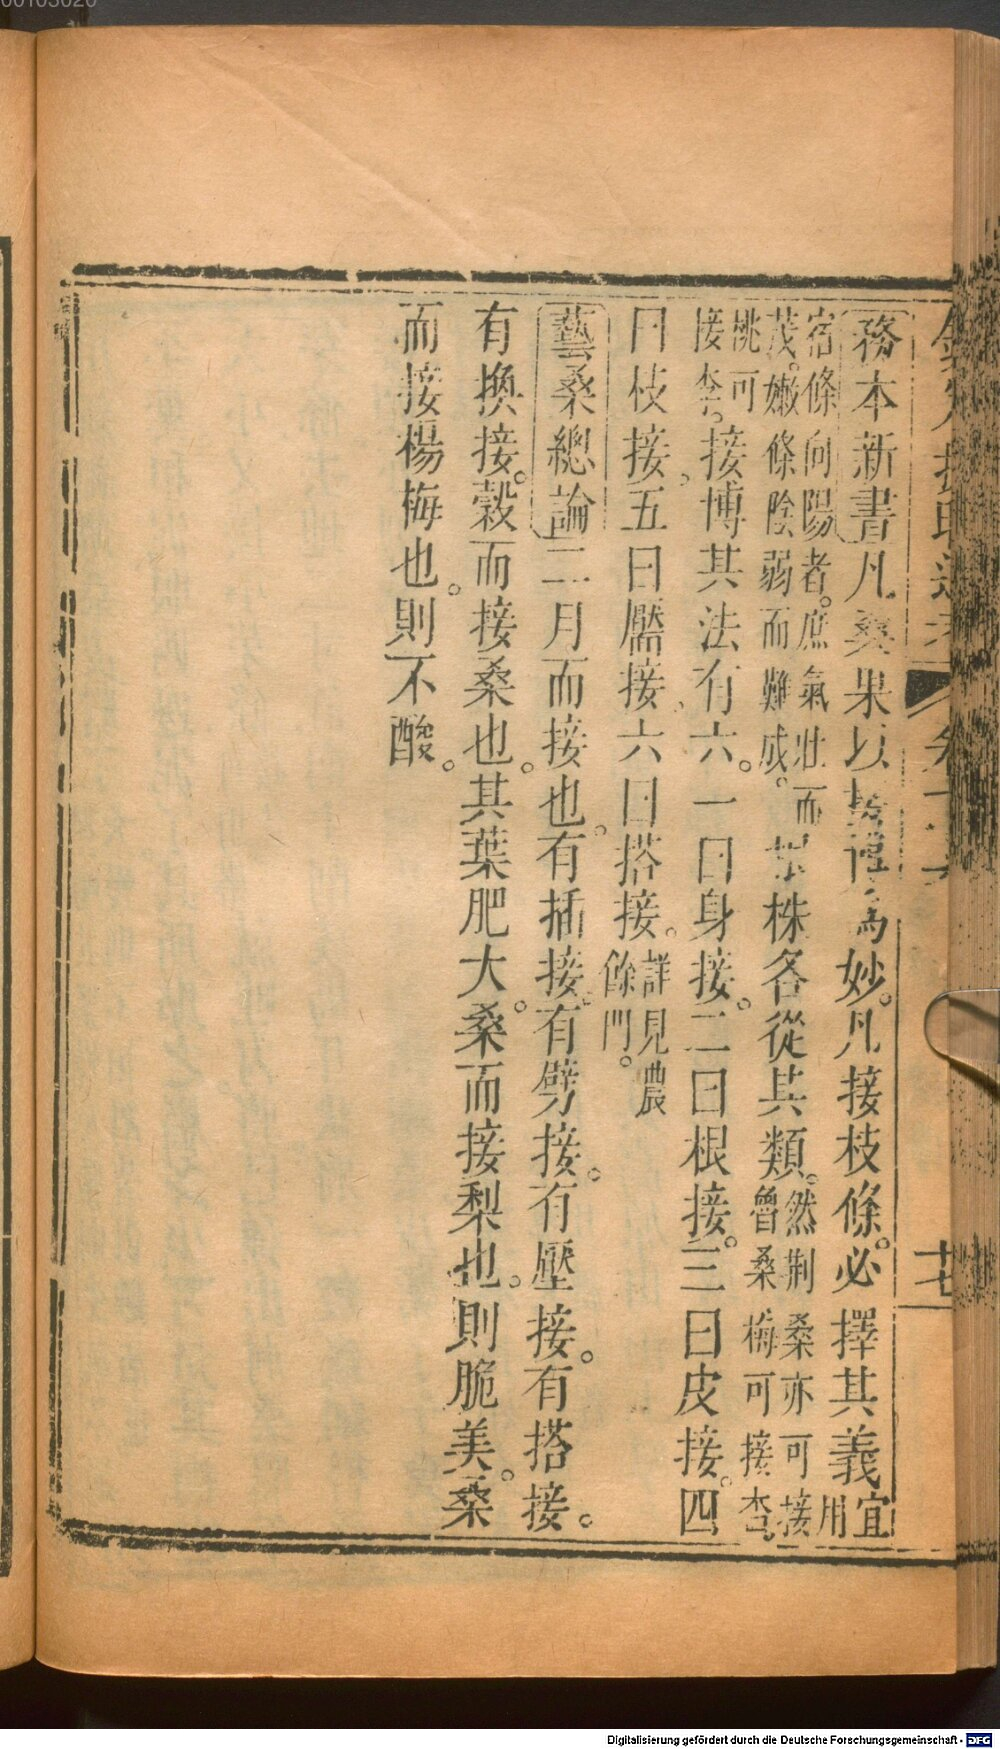 務本新書凡桑果以接博爲妙。凡接枝條。必擇其義宜用
宿條向陽者。庶氣壯而茂。嫩條陰弱而難成。根株各從其類。然荆桑亦可接魯桑梅可接杏。
桃可接李。接博其法有六。一曰身接。二曰根接。三曰皮接。四
曰枝接。五曰靨接。六曰搭接。詳見農餘門。
藝桑總論二月而接也。有插接。有劈接。有壓接。有搭接。
有換接。穀而接桑也。其葉肥大。桑而接梨也。則脆美。桑
而接楊梅也。則不酸。
十七
00103020
Digitalisierung gefördert durch die Deutsche Forschungsgemeinschaft - DFG